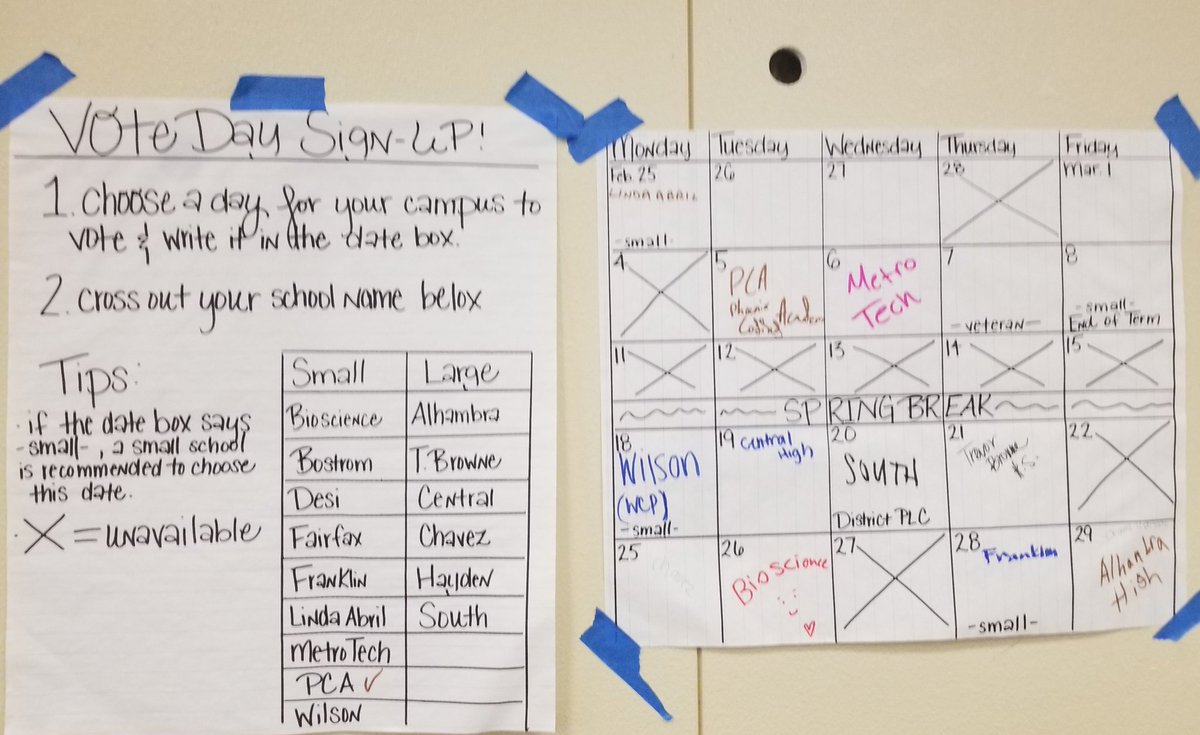 VOTE DAY SIGN-UP!
1. CHOOSE A DAY for your campus to
VOTE & WRITE it IN the date box.
2. CROSS OUT your SCHOOL NAME belox
Tips:
· if the date box says
-small-, a small school
is recommended to choose
this date.
· X = UNAVAILABLE
Small Large
BIOSCIENCE Alhambra
Bostrom T. BROWNE
Desi CENTRAL
Fairfax Chavez
FRANKLIN HAYDEN
Linda Abril South
METRO TECH
PCA ✓
WILSON
MONDAY TUESDAY WEDNESDAY THURSDAY FRIDAY
Feb. 25 26 27 28 Mar. 1
LINDA ABRIL
-small-
4 5 6 7 8
PCA Metro
Phoenix Tech
Coding Academy
-veteran- -small-
End of Term
11 12 13 14 15
SPRING BREAK
18 19 20 21 22
Wilson Central High SOUTH Trevor Browne
(WCP)
-small- District PLC
25 26 27 28 29
Bioscience Franklin Alhambra
High
-small-